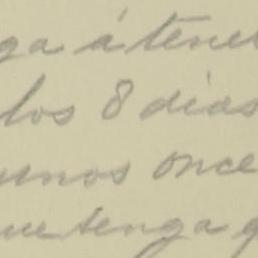 ga á tener
los 8 dias
unos once
ue tenga q